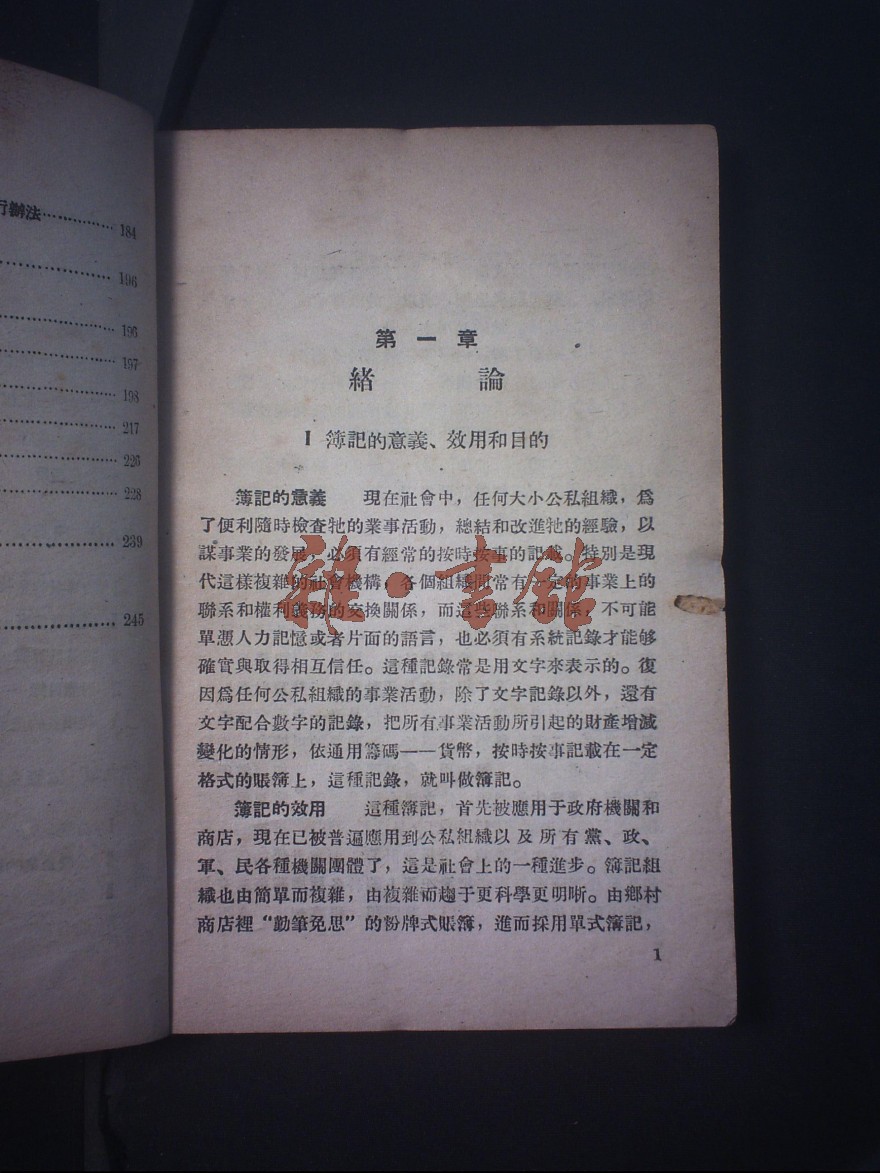 行辦法 184
196
196
197
198
217
226
228
239
245
第一章
緒論
I 簿記的意義、效用和目的
簿記的意義 現在社會中，任何大小公私組織，爲
了便利隨時檢查牠的業事活動，總結和改進牠的經驗，以
謀事業的發展，必須有經常的按時按事的記載。特別是現
代這樣複雜的社會機構，各個組織間常有一定的事業上的
聯系和權利義務的交換關係，而這些聯系和關係，不可能
單憑人力記憶或者片面的語言，也必須有系統記錄才能够
確實與取得相互信任。這種記錄常是用文字來表示的。復
因爲任何公私組織的事業活動，除了文字記錄以外，還有
文字配合數字的記錄，把所有事業活動所引起的財產增減
變化的情形，依通用籌碼——貨幣，按時按事記載在一定
格式的賬簿上，這種記錄，就叫做簿記。
簿記的效用 這種簿記，首先被應用于政府機關和
商店，現在已被普遍應用到公私組織以及所有黨、政、
軍、民各種機關團體了，這是社會上的一種進步。簿記組
織也由簡單而複雜，由複雜而趨于更科學更明晰。由鄉村
商店裡“勤筆免思”的粉牌式賬簿，進而採用單式簿記，
1
雜·書館